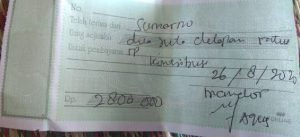 No.
Telah terima dari Sumarno
Uang sejumlah dua juta delapan ratus
rp
Untuk pembayaran
Kontribusi
26/8/2020
Rp. 2800 000
Agus